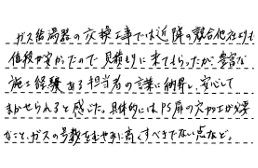 ガス給湯器の交換工事では近隣の競合他社よりも
値段が安かったので見積もりに来てもらったが、豊富な
施工経験ある担当者の言葉に納得し、安心して
まかせられると感じた。具体的にはPS扉の穴加工が必要
なこと、ガスの号数をむやみに高くすべきでない点など。